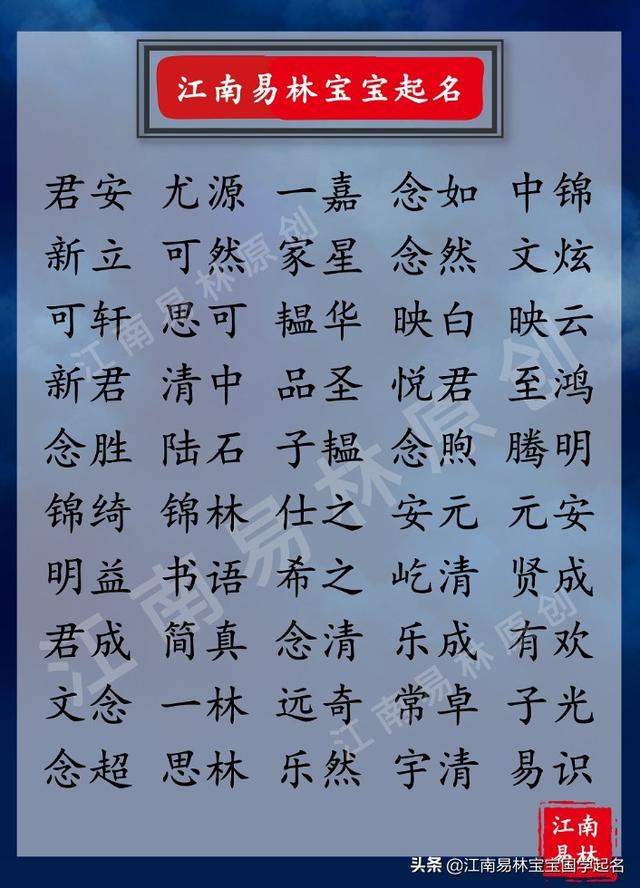 江南易林宝宝起名
君安 尤源 一嘉 念如 中锦
新立 可然 家星 念然 文炫
可轩 思可 韫华 映白 映云
新君 清中 品圣 悦君 至鸿
念胜 陆石 子韫 念煦 腾明
锦绮 锦林 仕之 安元 元安
明益 书语 希之 屹清 贤成
君成 简真 念清 乐成 有欢
文念 一林 远奇 常卓 子光
念超 思林 乐然 宇清 易识
江南易林原创
江南易林原创
江南易林原创
江南
易林
头条 @江南易林宝宝国学起名